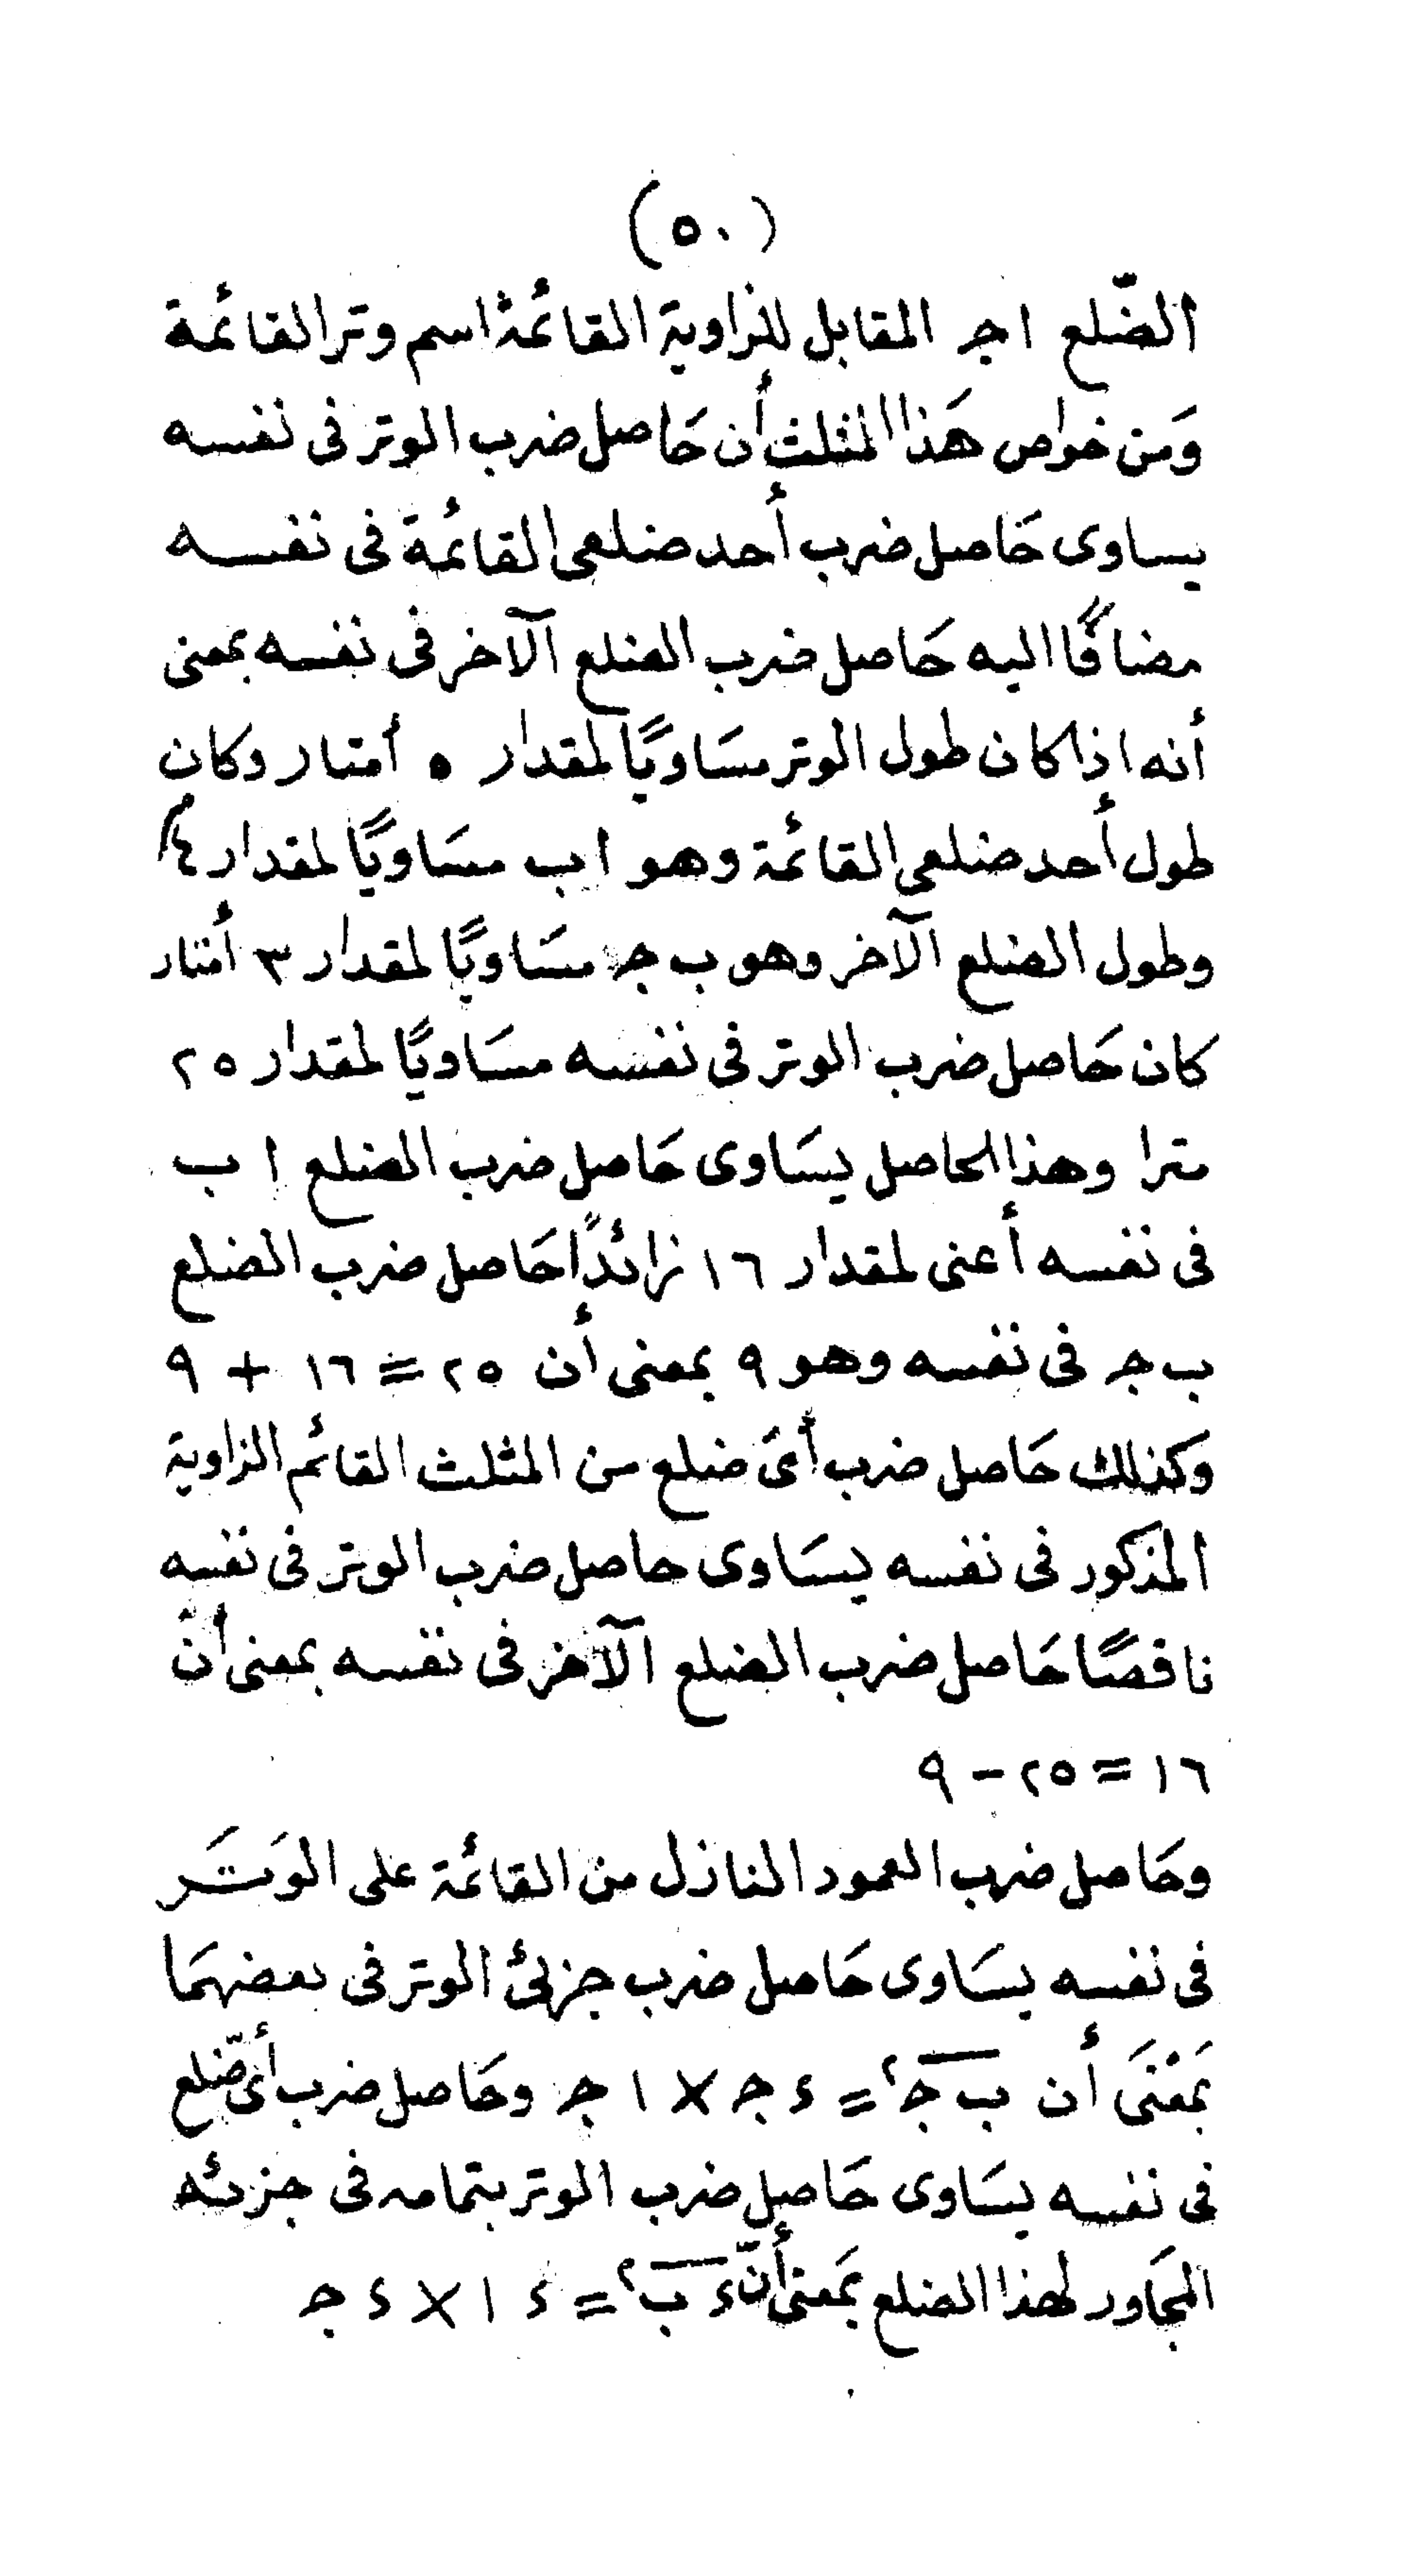 (٥٠)
الضّلع ا جـ المقابل للزاوية القائمة اسم وتر القائمة
وَمن خواص هَذا المثلث أن حَاصل ضرب الوتر فى نفسه
يساوى حَاصل ضرب أحد ضلعى القائمة فى نفسه
مضافًا اليه حَاصل ضرب الضلع الآخر فى نفسه بمعنى
أنه اذا كان طول الوتر مسَاويًا لمقدار ٥ أمتار وكان
طول أحد ضلعى القائمة وهو ا ب مسَاويًا لمقدار ٤م
وطول الضلع الآخر وهو ب جـ مسَاويًا لمقدار ٣ أمتار
كان حَاصل ضرب الوتر فى نفسه مسَاويًا لمقدار ٢٥
مترا وهذا الحاصل يسَاوى حَاصل ضرب الضلع ا ب
فى نفسه أعنى لمقدار ١٦ زائدًا حَاصل ضرب الضلع
ب جـ فى نفسه وهو ٩ بمعنى أن ٢٥ = ١٦ + ٩
وكذلك حَاصل ضرب أىَ ضلع من المثلث القائم الزاوية
المذكور فى نفسه يسَاوى حاصل ضرب الوتر فى نفسه
ناقصًا حَاصل ضرب الضلع الآخر فى نفسه بمعنى أن
١٦ = ٢٥ - ٩
وحَاصل ضرب العمود النازل من القائمة على الوَتَر
فى نفسه يسَاوى حَاصل ضرب جزئ الوتر فى بعضهمَا
بمَعْنَى أن ب جـ٢ = ء جـ × ا جـ وحَاصل ضرب أى ضّلع
فى نفسه يسَاوى حَاصل ضرب الوتر بتمامه فى جزئه
المجَاور لهذا الضلع بمَعنى أنّ ء ب٢ = ء ا × ء جـ